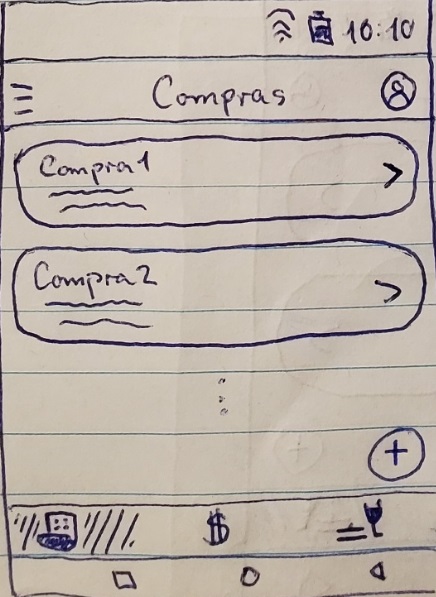 10:10
Compras
Compra1
Compra2
+
$